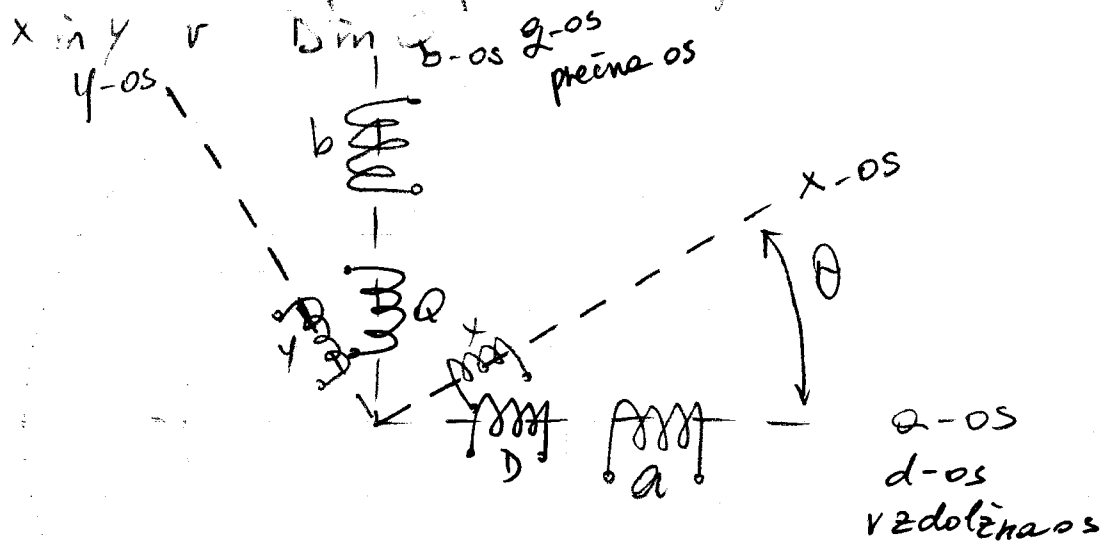 x in y v D in Q
b-os q-os
prečna os
y-os
b
x-os
θ
Q
x
y
D
a
a-os
d-os
vzdolžna os